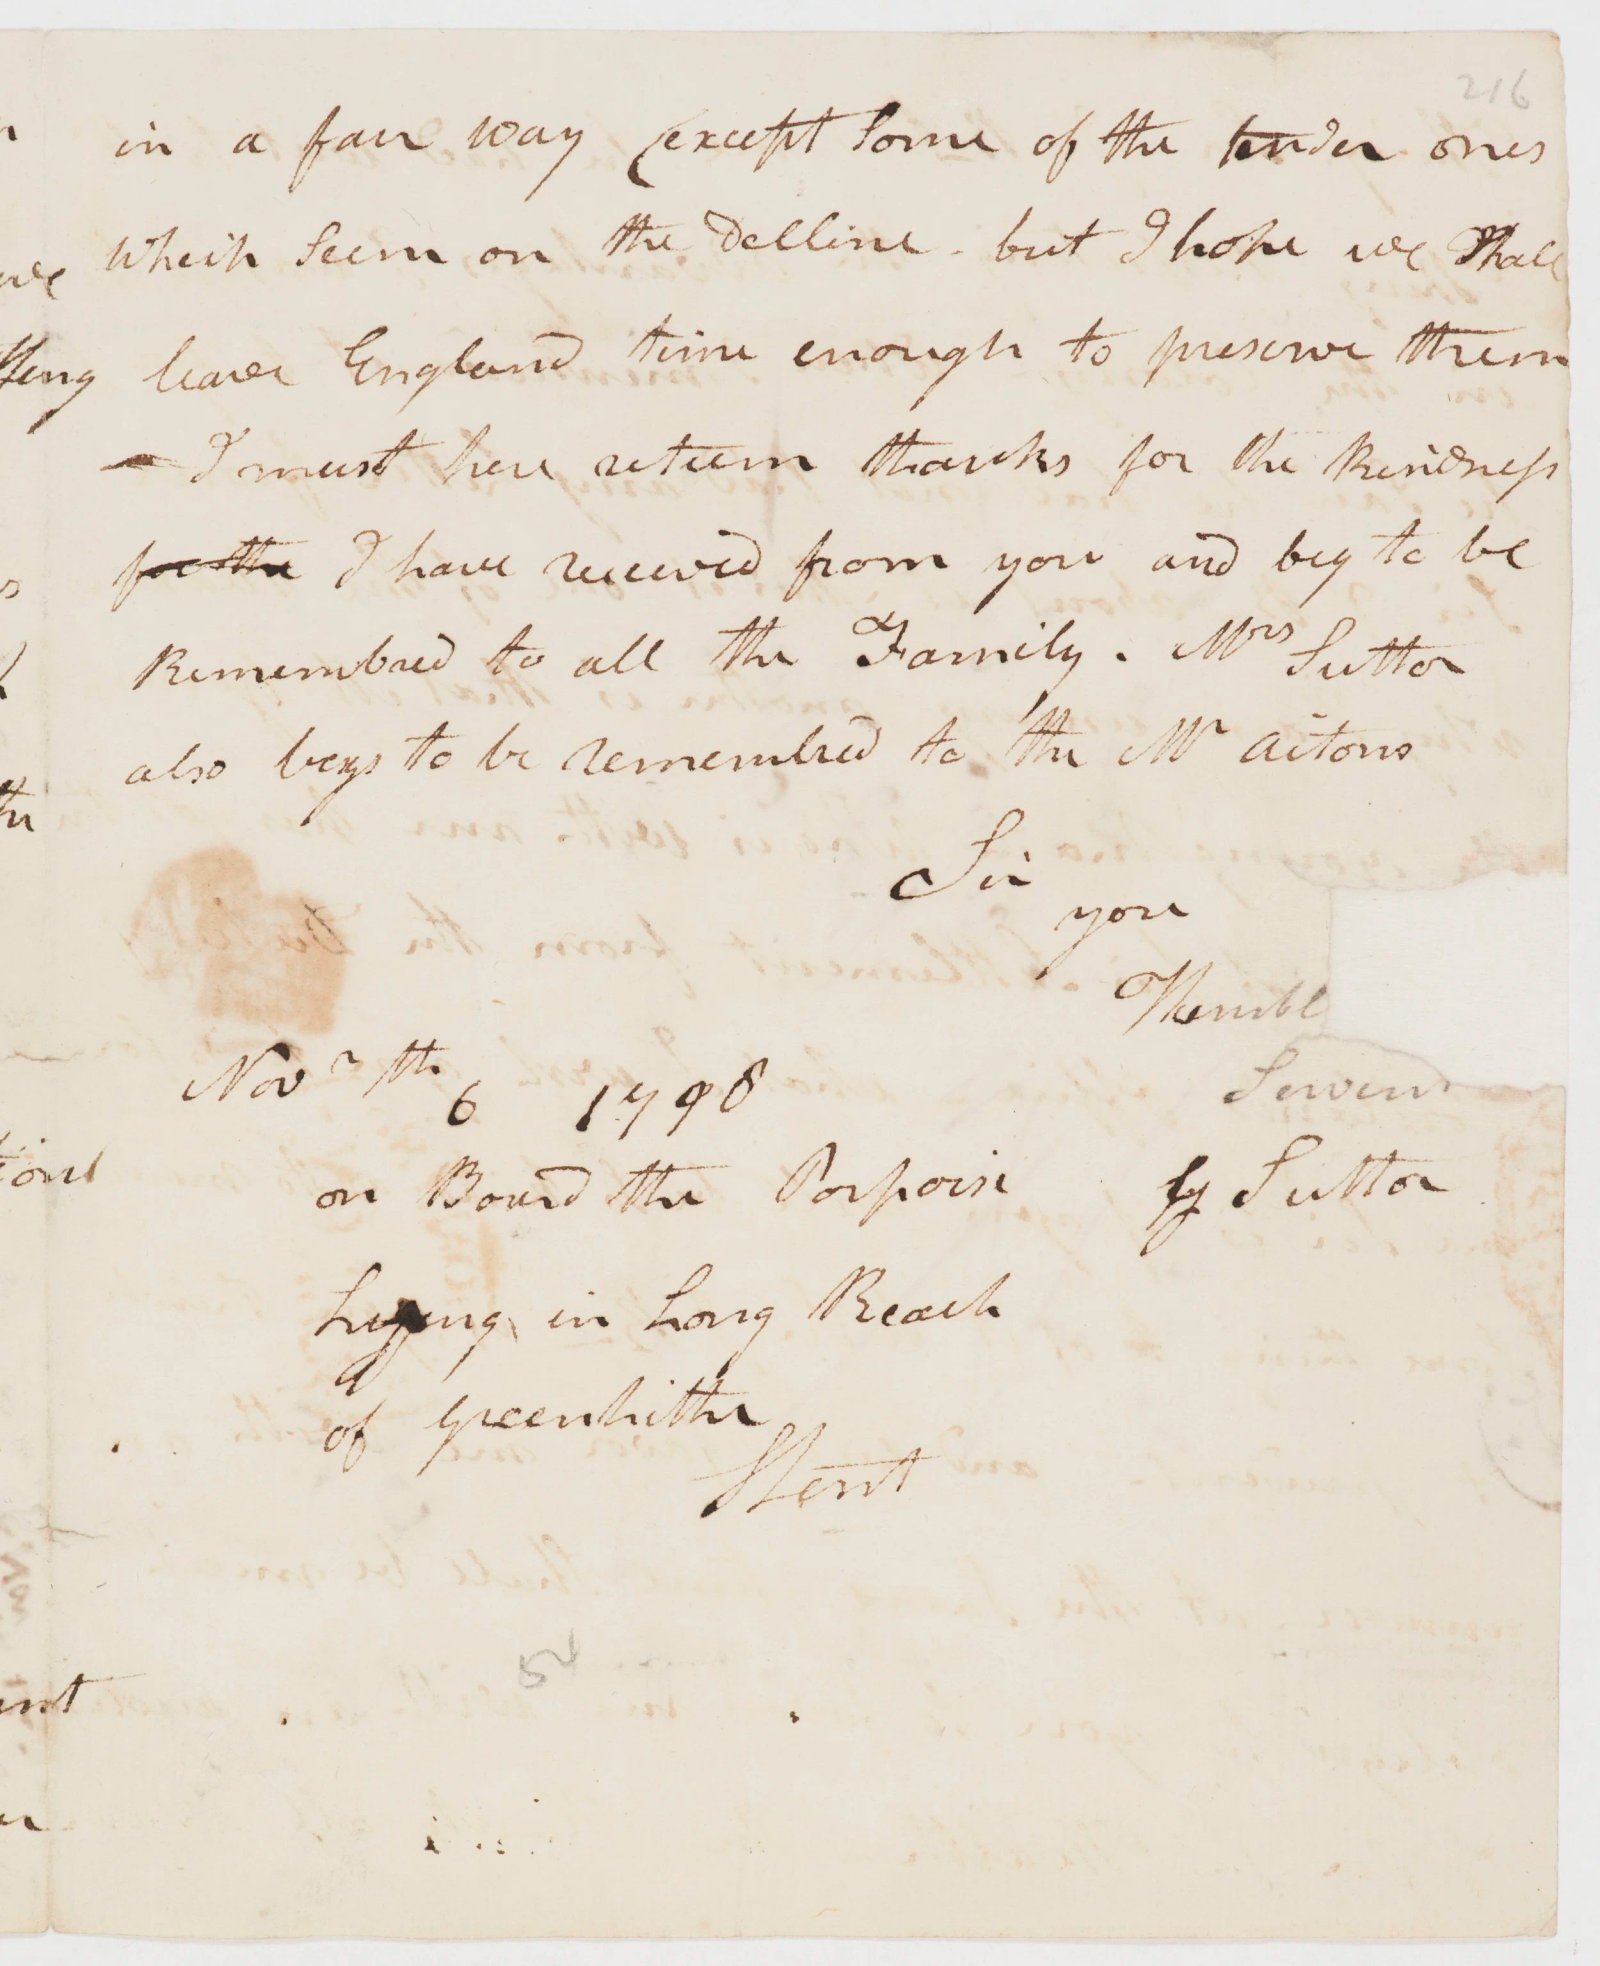 216
in a fair way (except Some of the tender ones
which Seem on the Decline - but I hope we Shall
leave England time enough to preserve them
- I must here return thanks for the Kindness
for the I have received from you and beg to be
Remembred to all the Family. Mrs Suttor
also begs to be remembred to the Mr aitons
Sir
your
Humbl
Servent
G Suttor
Novr th 6 1798
on Board the Porpoise
Lying in Long Reach
of greenhithe
Kent